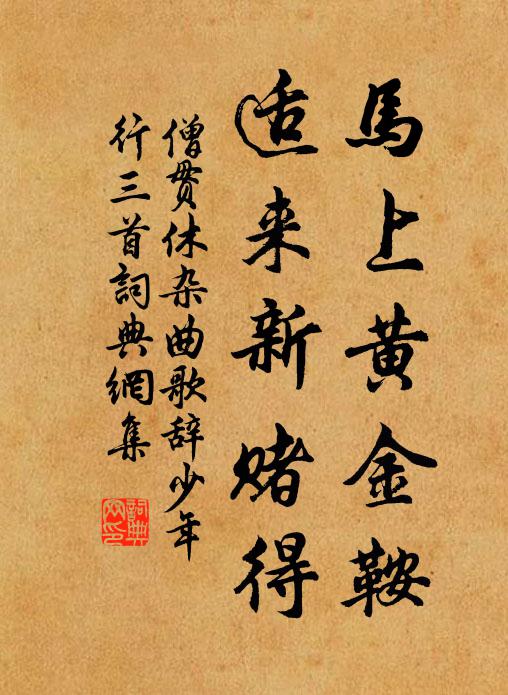 馬上黄金鞍
适来新赌得
僧贯休杂曲歌辞少年
行三首詞典網集
詞典
网印